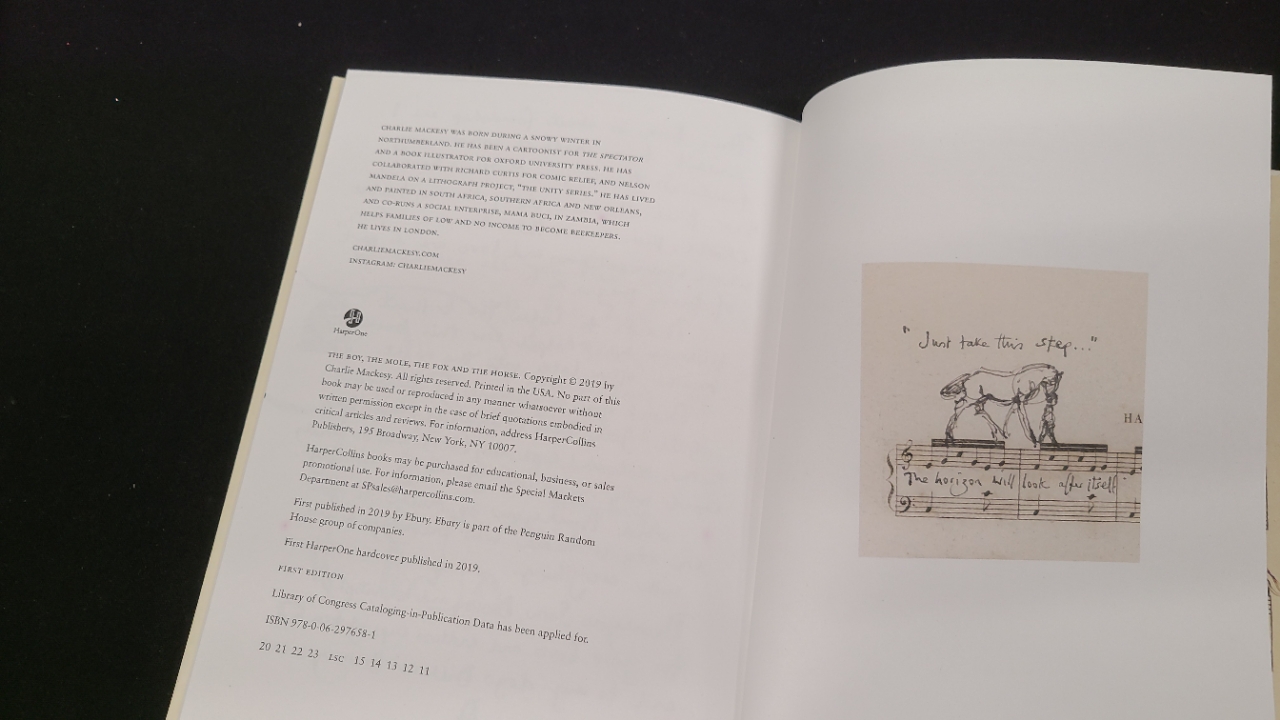 CHARLIE MACKESY WAS BORN DURING A SNOWY WINTER IN
NORTHUMBERLAND. HE HAS BEEN A CARTOONIST FOR THE SPECTATOR
AND A BOOK ILLUSTRATOR FOR OXFORD UNIVERSITY PRESS. HE HAS
COLLABORATED WITH RICHARD CURTIS FOR COMIC RELIEF, AND NELSON
MANDELA ON A LITHOGRAPH PROJECT, "THE UNITY SERIES." HE HAS LIVED
AND PAINTED IN SOUTH AFRICA, SOUTHERN AFRICA AND NEW ORLEANS,
AND CO-RUNS A SOCIAL ENTERPRISE, MAMA BUCI, IN ZAMBIA, WHICH
HELPS FAMILIES OF LOW AND NO INCOME TO BECOME BEEKEEPERS.
HE LIVES IN LONDON.
CHARLIEMACKESY.COM
INSTAGRAM: CHARLIEMACKESY
HarperOne
THE BOY, THE MOLE, THE FOX AND THE HORSE. Copyright © 2019 by
Charlie Mackesy. All rights reserved. Printed in the USA. No part of this
book may be used or reproduced in any manner whatsoever without
written permission except in the case of brief quotations embodied in
critical articles and reviews. For information, address HarperCollins
Publishers, 195 Broadway, New York, NY 10007.
HarperCollins books may be purchased for educational, business, or sales
promotional use. For information, please email the Special Markets
Department at SPsales@harpercollins.com.
First published in 2019 by Ebury. Ebury is part of the Penguin Random
House group of companies.
First HarperOne hardcover published in 2019.
FIRST EDITION
Library of Congress Cataloging-in-Publication Data has been applied for.
ISBN 978-0-06-297658-1
20 21 22 23 LSC 15 14 13 12 11
"Just take this step..."
HA
The horizon will look after itself